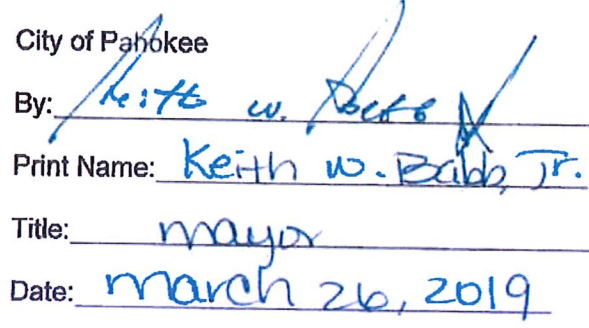 City of Pahokee
By: Keith W. Babb Jr
Print Name: Keith W. Babb, Jr.
Title: mayor
Date: March 26, 2019